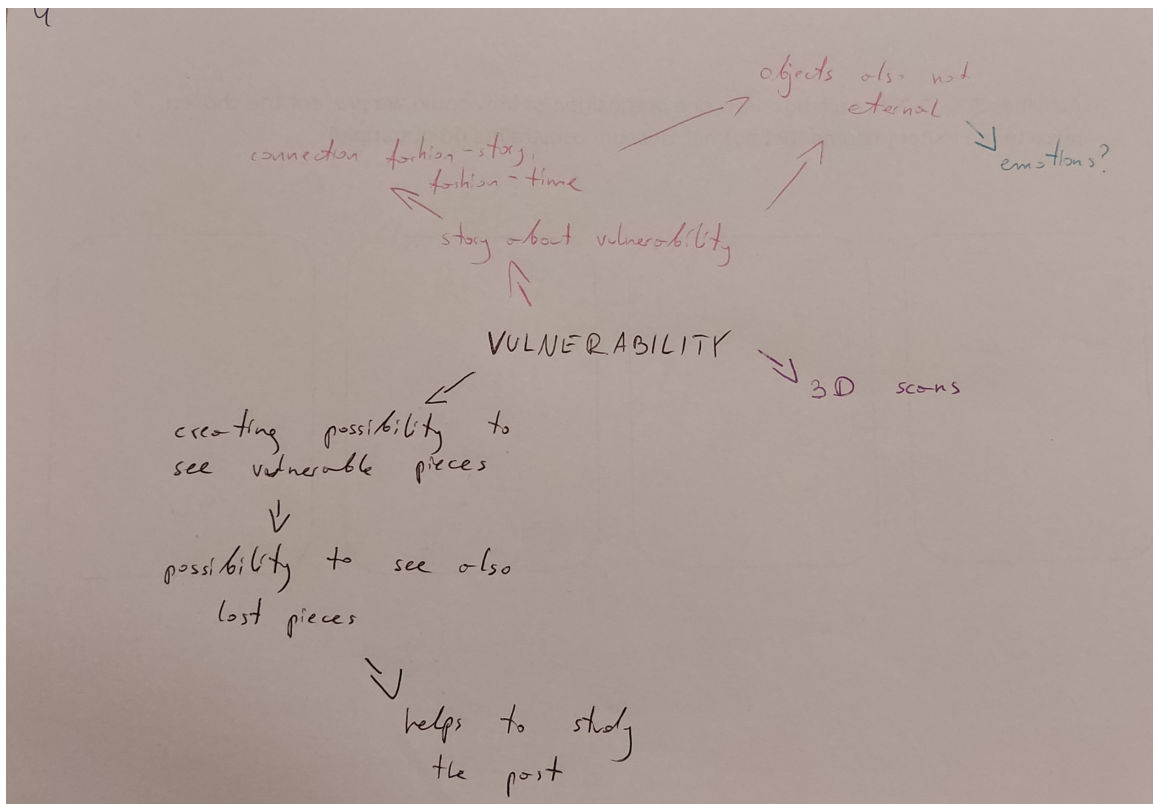 4
objects also not
eternal
emotions?
connection fashion-story,
fashion-time
story about vulnerability
VULNERABILITY
3D scans
creating possibility to
see vulnerable pieces
possibility to see also
lost pieces
helps to study
the past